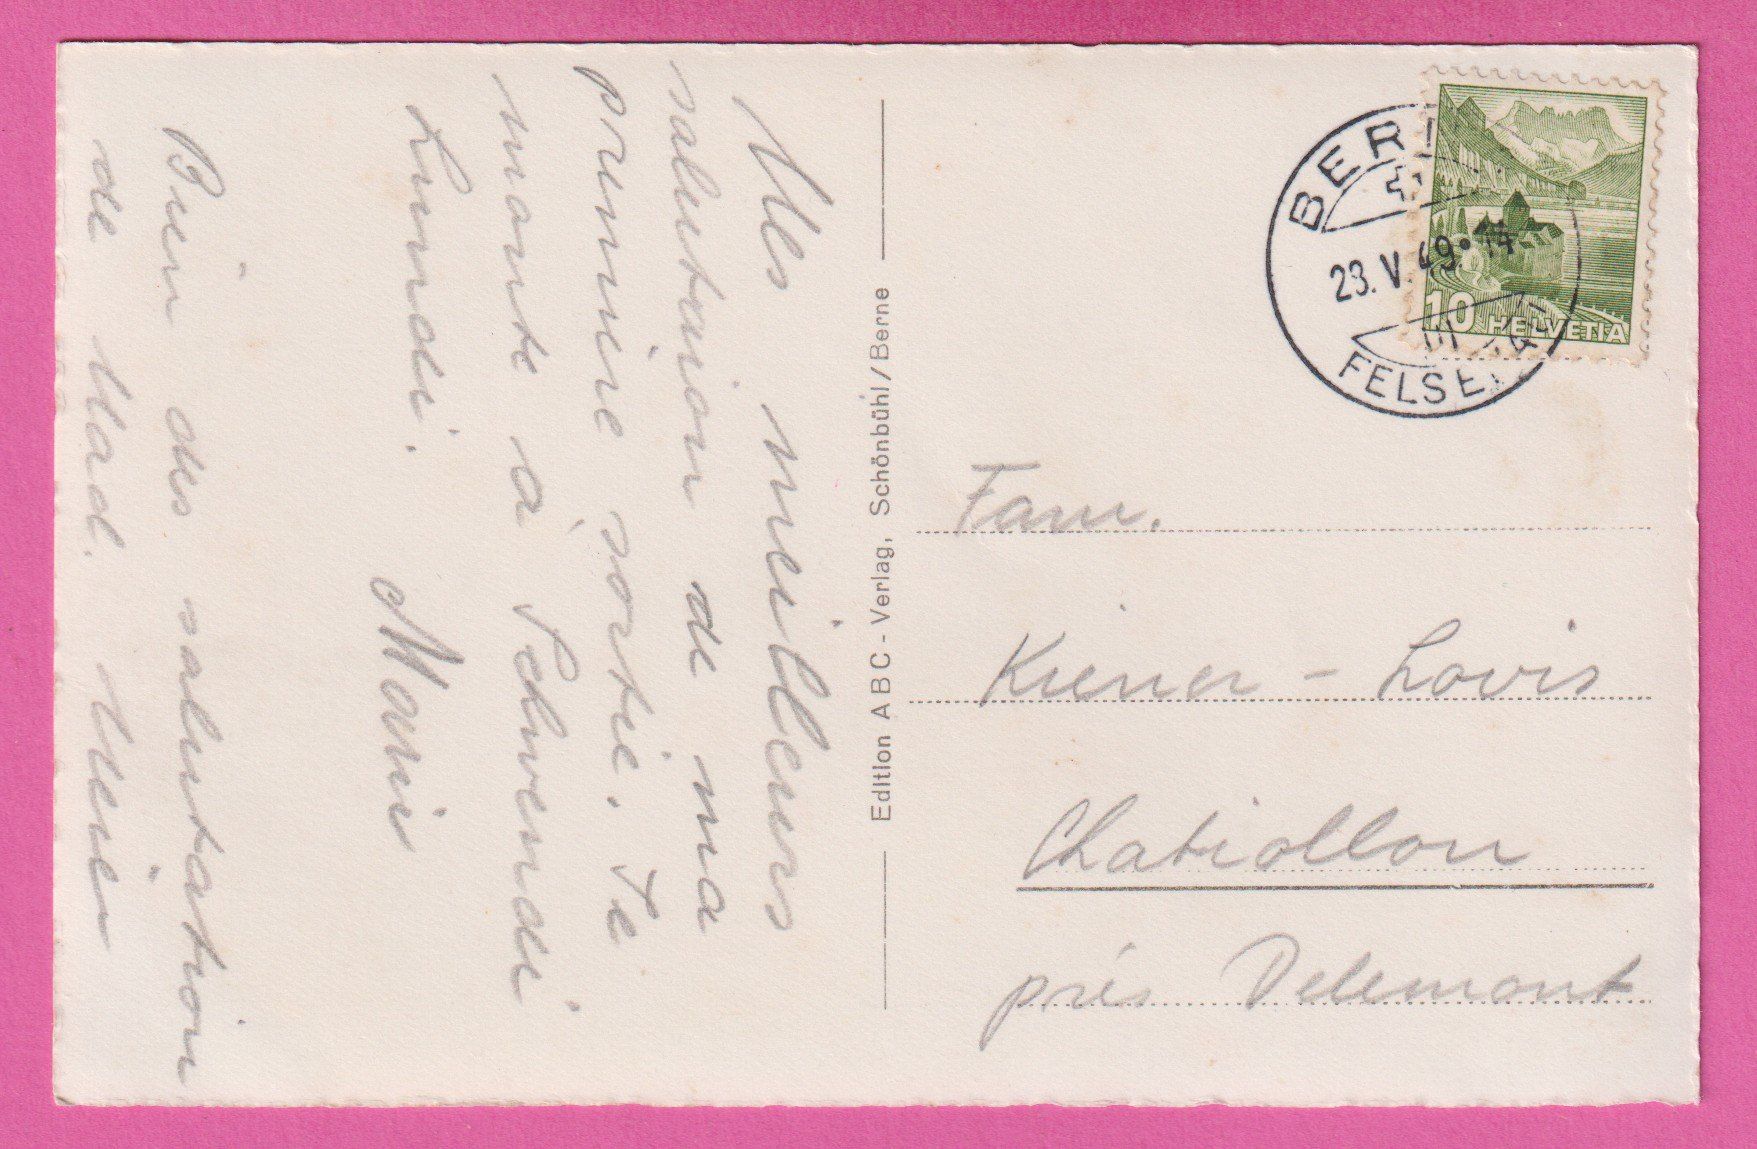 Mes meilleurs
salutation de ma
premiere sortie. Je
monte à Schwendi
Lundi.
Marie
Bien des salutation
de Mad.
Edition ABC - Verlag, Schönbühl/Berne
BER
23. V. 49. 14
FELSE
10 HELVETIA
Fam.
Kiener - Lovis
Chatiollon
prés Delemont